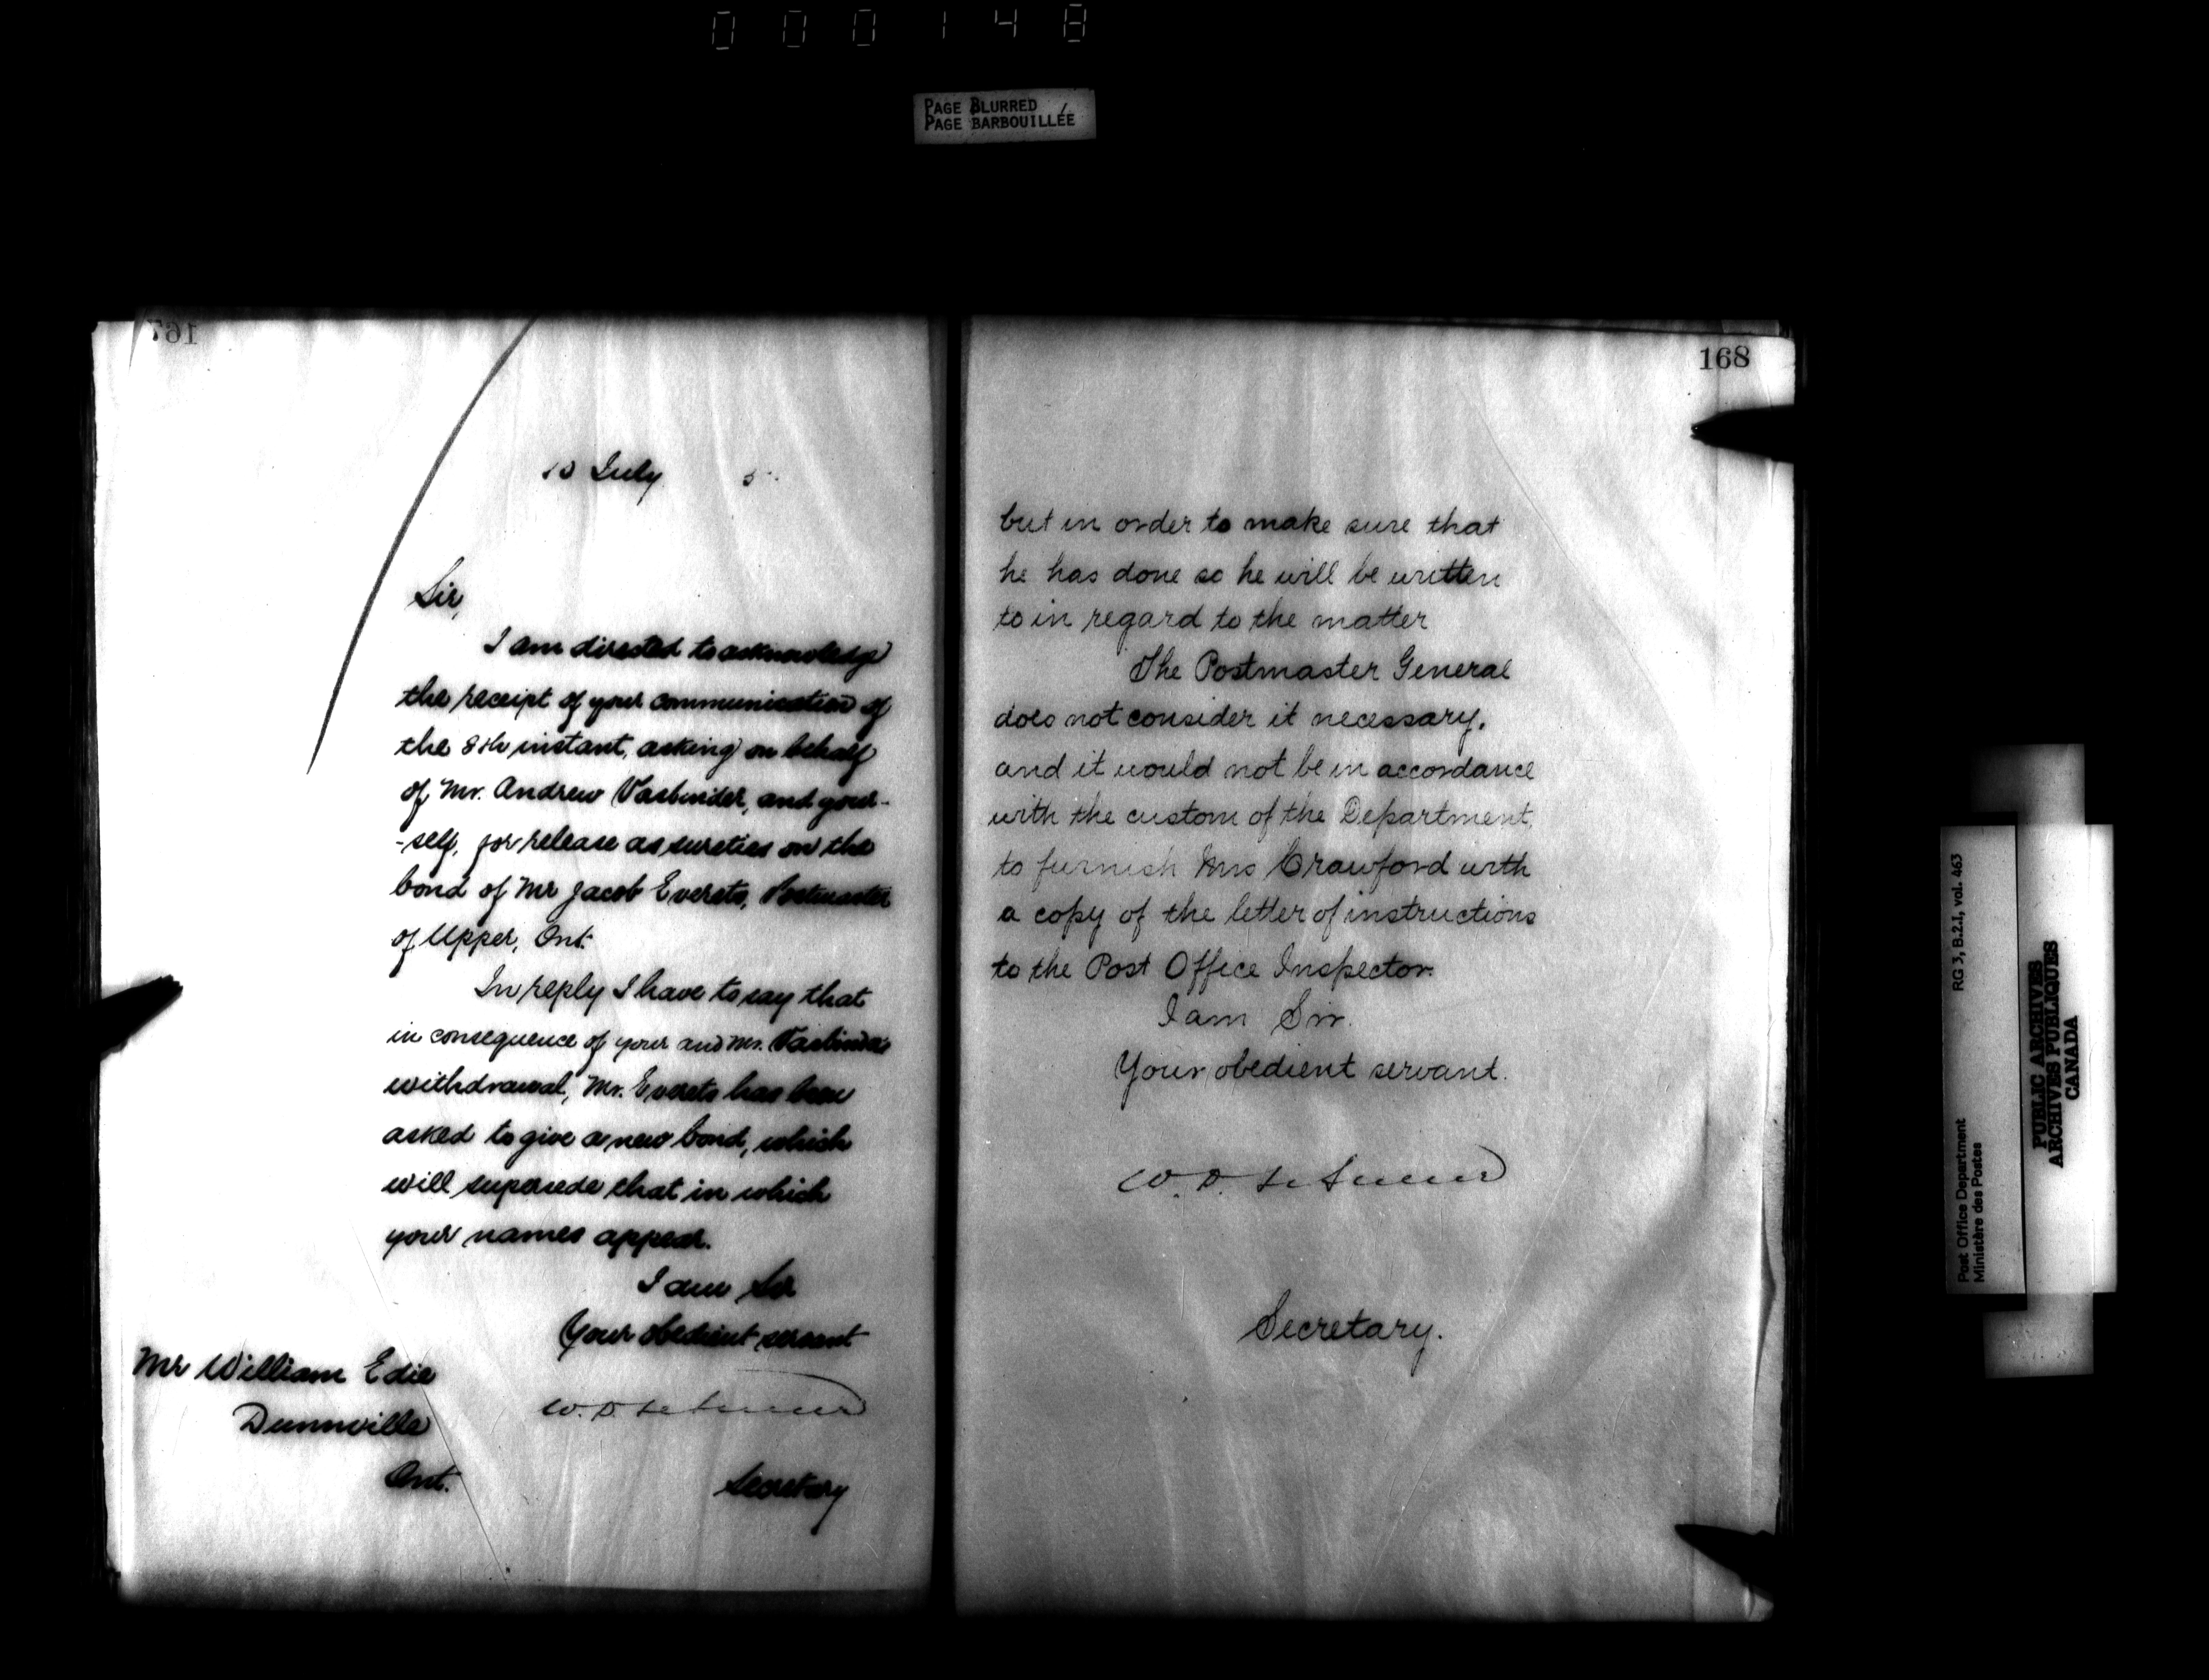 000148
PAGE BLURRED
PAGE BARBOUILLÉE
167
10 July 5
Sir,
I am directed to acknowledge
the receipt of your communication of
the 8th instant, asking on behalf
of Mr. Andrew Vasbinder, and your-
-self, for release as sureties on the
bond of Mr Jacob Everets, Postmaster
of Upper, Ont.
In reply I have to say that
in consequence of your and Mr. Vasbinder's
withdrawal, Mr. Everets has been
asked to give a new bond, which
will supersede that in which
your names appear.
I am Sir
Your obedient servant
Mr William Edie
Dunnville
Ont.
W. D.
Secretary
168
but in order to make sure that
he has done so he will be written
to in regard to the matter
The Postmaster General
does not consider it necessary,
and it would not be in accordance
with the custom of the Department,
to furnish Mrs Crawford with
a copy of the letter of instructions
to the Post Office Inspector.
I am Sir.
Your obedient servant.
W. D.
Secretary.
RG 3, B.2.I, vol. 463
Post Office Department
Ministère des Postes
PUBLIC ARCHIVES
ARCHIVES PUBLIQUES
CANADA